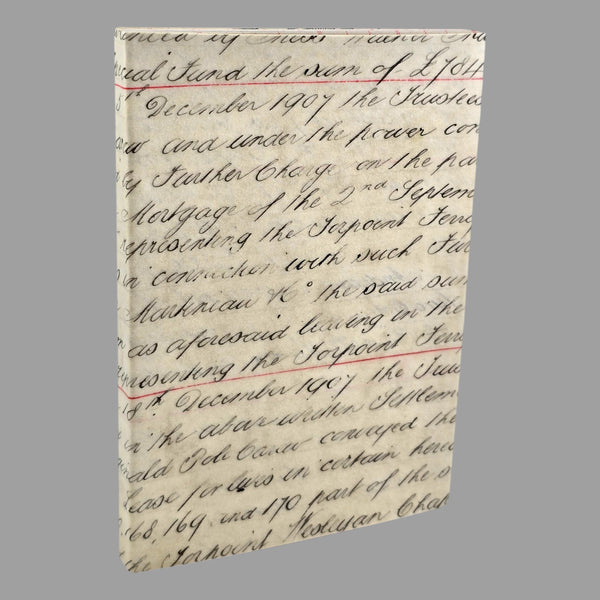 cial Fund the sum of £784
8th December 1907 the Trustee
and under the power con
by Further Charge on the pa
Mortgage of the 2nd Septem
representing the Torpoint Ferr
in connection with such Fur
Martineau & Co the said sum
as aforesaid leaving in the
representing the Torpoint Ferr
18th December 1907 the Trus
in the above written Settlem
ald Pole Carew conveyed the
Lease for lives in certain here
168, 169, and 170 part of the s
the Torpoint Wesleyan Chap